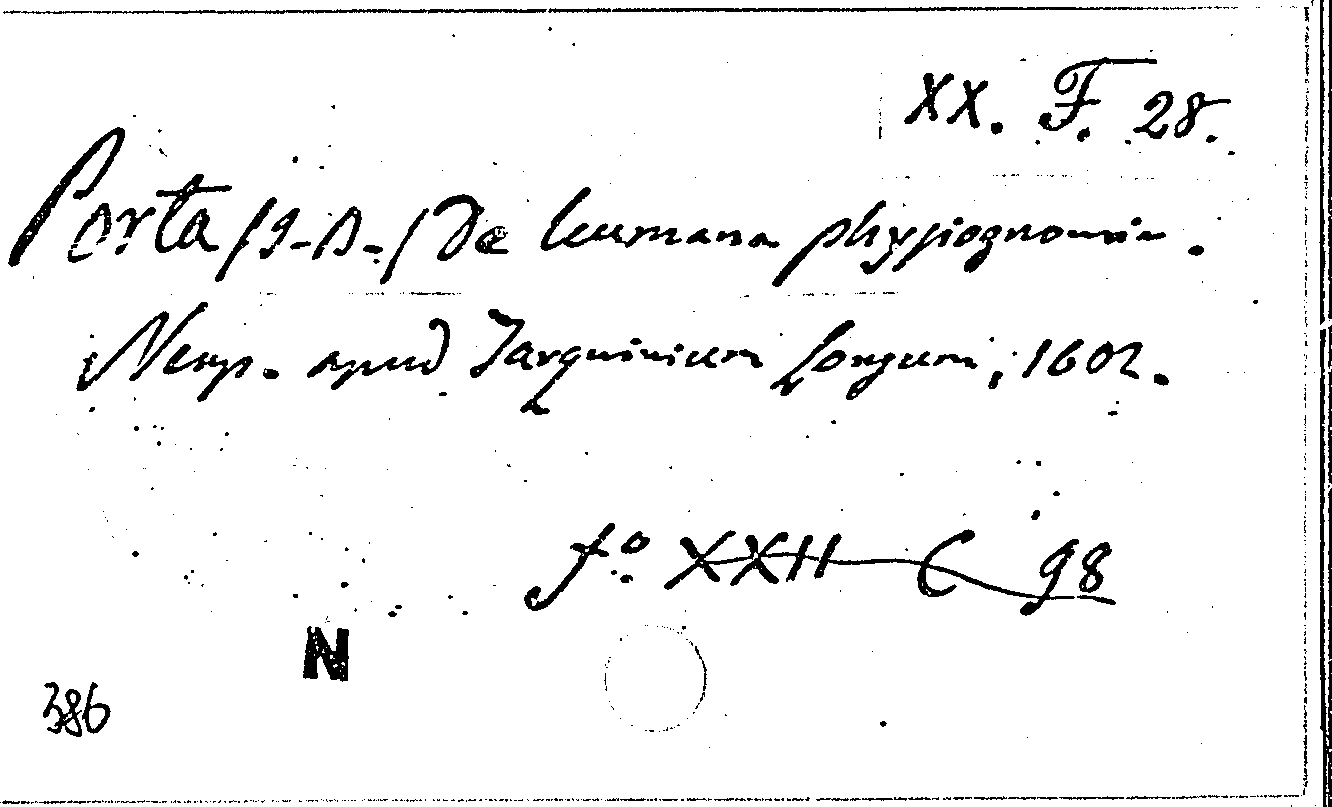 XX. F. 28.
Porta (J-B-) De humana physiognomia.
Neap. apud Tarquinium Longum, 1602.
fº. XXII C 98
N
386